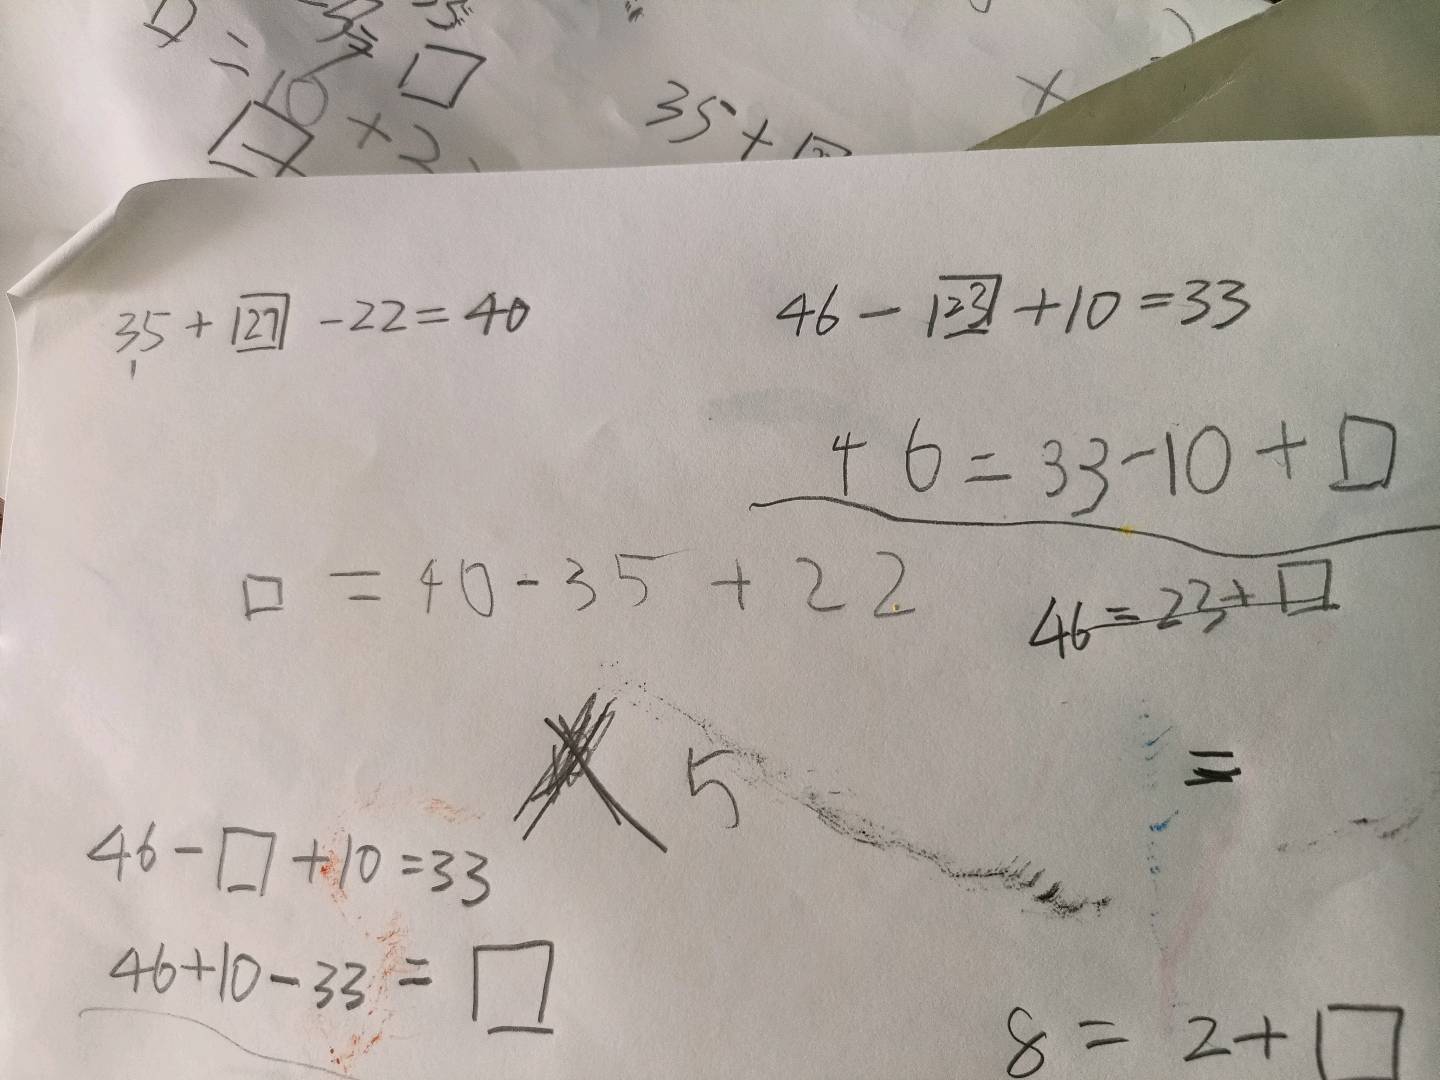 35 + □
35 + 27 - 22 = 40
46 - 23 + 10 = 33
46 = 33 - 10 + □
□ = 40 - 35 + 22
46 = 23 + □
5
=
46 - □ + 10 = 33
46 + 10 - 33 = □
8 = 2 + □